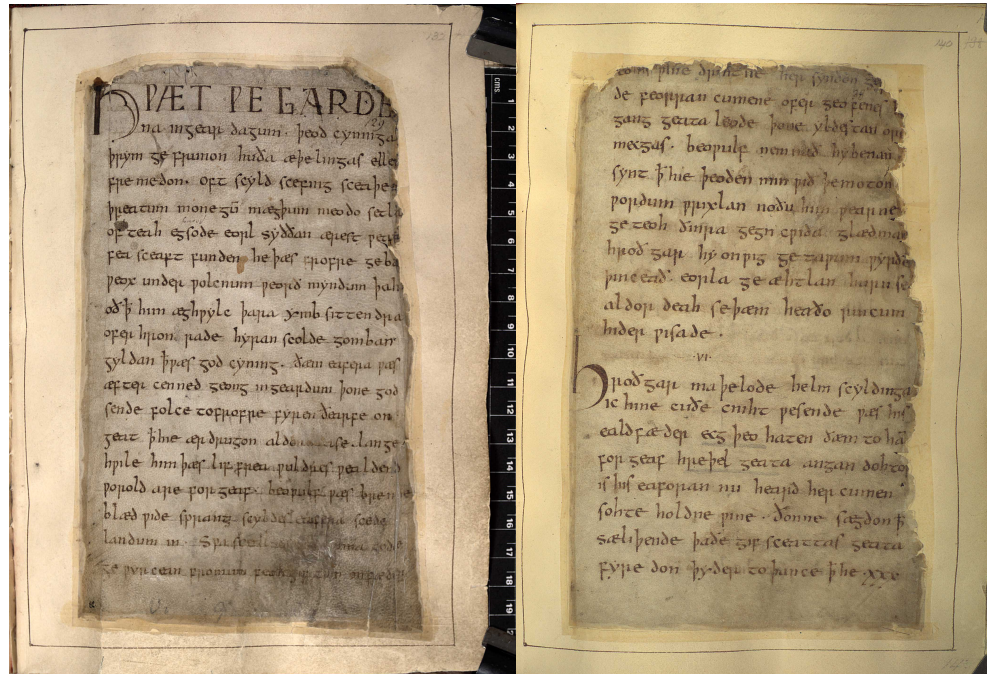 HǷÆT ǷE GARDE
na ingear dagum · þeod cyninga
þrym ge frunon huða æþelingas elle
fremedon · oft scyld scefing sceaþe
þreatum monegū mægþum meodo setla
of teah egsode eorl syððan ærest ƿe
fea sceaft funden he þæs frofre geba
ƿeox under ƿolcnum ƿeorð myndum þah
oð ꝥ him æghƿylc þara ymb sittendra
ofer hron rade hyran scolde gomban
gyldan ꝥ ƿæs god cyning · ðæm eafera ƿæs
æfter cenned geong ingeardum þone god
sende folce tofrofre fyren ðearfe on
geat ꝥ hie ær drugon aldor ase lange
hƿile him þæs lif frea ƿuldres ƿealdend
ƿorold are for geaf · beoƿulf ƿæs breme
blæd ƿide sprang scyldes eafera scede
landum in · Sƿa sceal guma gode
ge ƿyrcean fromum feoh giftum on fæder
cms
1
2
3
4
5
6
7
8
9
10
11
12
13
14
15
16
17
18
19
140
ƿine drihtne her syndon ge
de feorran cumene ofer geofenes
gang geata leode þone yldestan or
mecgas · beoƿulf nemnað hy benan
synt ꝥ hie þeoden min ƿið þe moton
ƿordum ƿrixlan no ðu him ƿearne
ge teoh ðinra gegn cƿida glædma
hroð gar hy on ƿig ge taƿum ƿyrðe
þinceað · eorla ge æhtlan huru se
aldor deah se þæm heaðo rincum
hider ƿisade ·
· VI ·
Hroð gar maþelode helm scyldinga
ic hine cuðe cniht ƿesende ƿæs his
eald fæder ecg þeo haten ðæm to hā
for geaf hreþel geata angan dohtor
is his eaforan nu heard her cumen
sohte holdne ƿine · ðonne sægdon ꝥ
sæliþende þa ðe gif sceattas geata
fyredon þyder to þance ꝥ he xxx